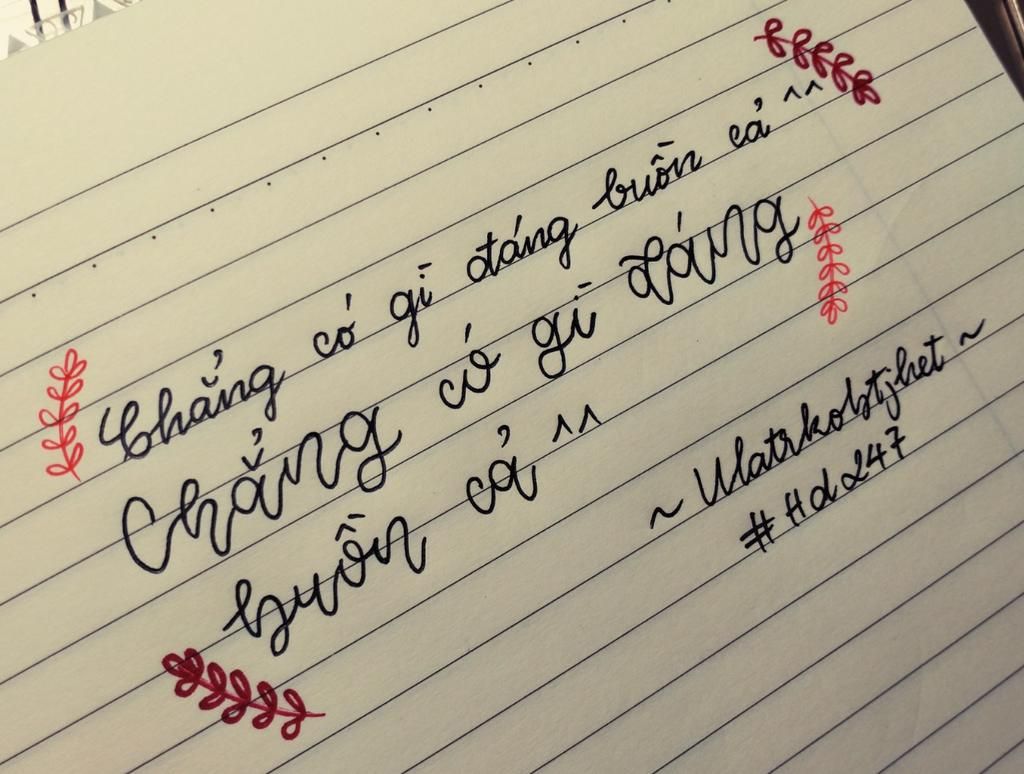 Chẳng có gì đáng buồn cả ^^
Chẳng có gì đáng
buồn cả ^^
#Hd247